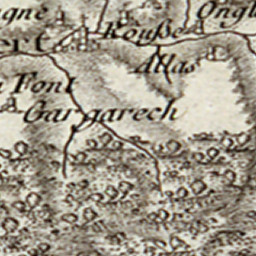 gne
Rouſse
Ongl
ert
Allas
Font
Gargarech